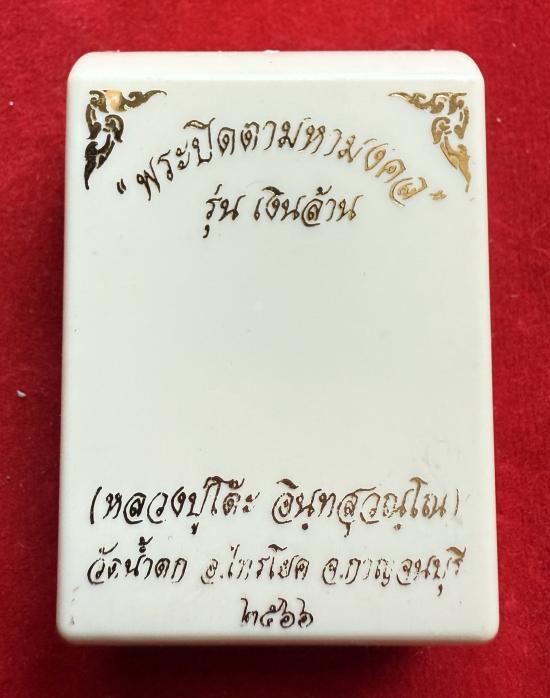 "พระปิดตามหามงคล"
รุ่น เงินล้าน
(หลวงปู่โต๊ะ อินฺทสุวณฺโณ)
วัดน้ำตก อ.ไทรโยค จ.กาญจนบุรี
๒๕๖๖